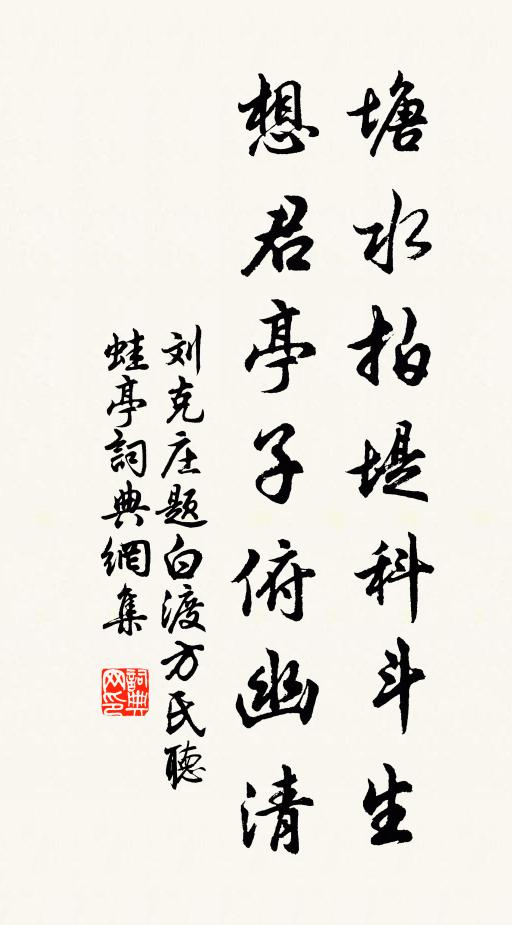 塘水拍堤科斗生
想君亭子俯幽清
刘克庄题白渡方氏聴
蛙亭詞典網集
詞典网印